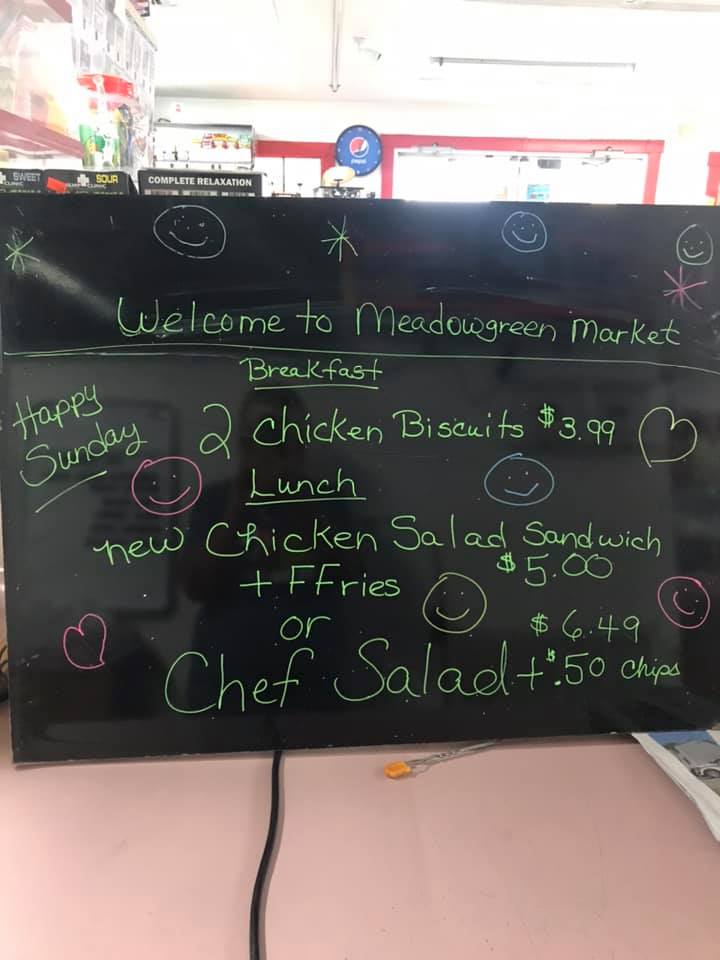 SWEET
CLINIC
SOUR
CLINIC
COMPLETE RELAXATION
pepsi
Welcome to Meadowgreen Market
Breakfast
Happy
Sunday
2 Chicken Biscuits $3.99
Lunch
new Chicken Salad Sandwich
$5.00
+ FFries
or
$6.49
Chef Salad + $.50 chips